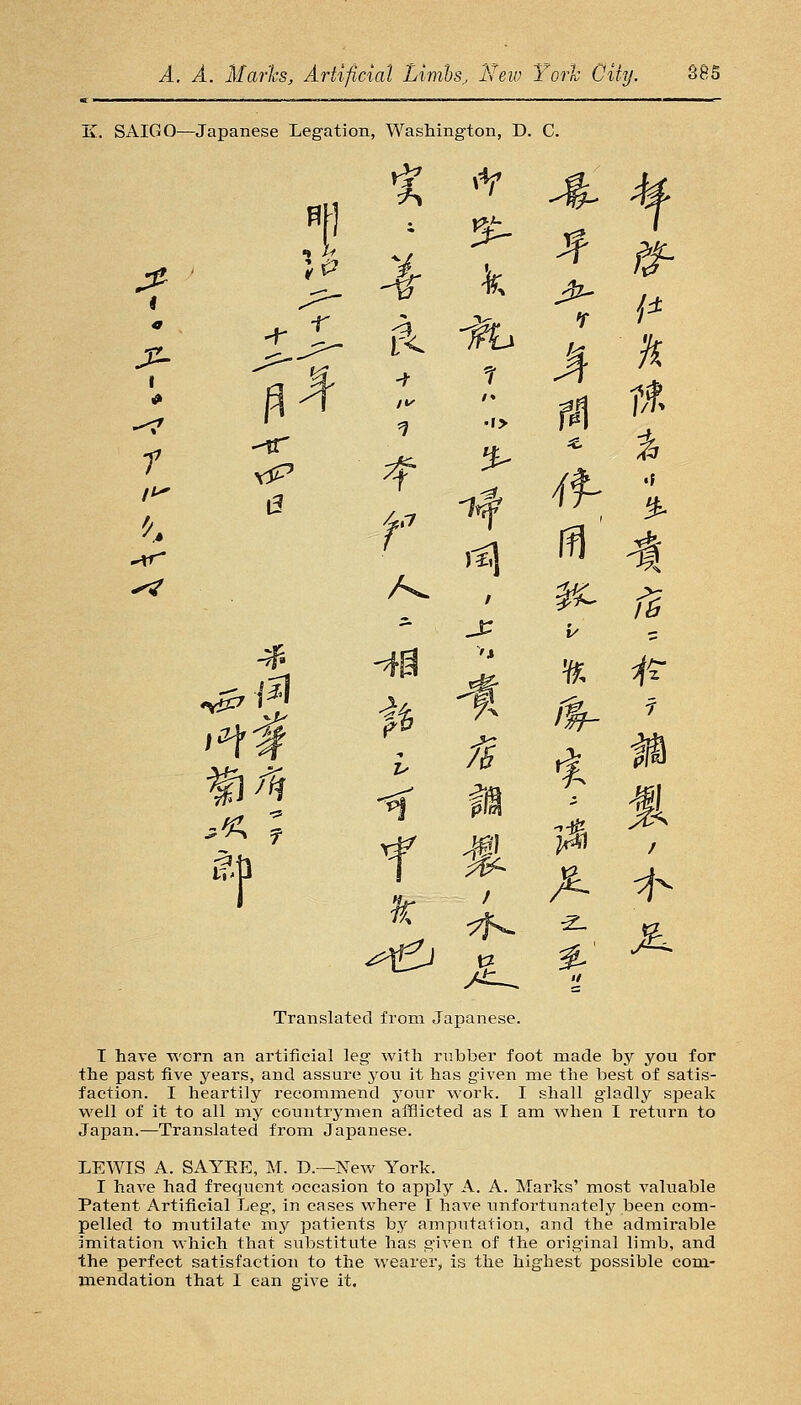 A. A. Marks, Artificial Limbs, New York City. 385
K. SAIGO—Japanese Legation, Washington, D. C.
拝啓仕候陳者小生貴店ニ於テ調製ノ木足
最早五ケ年間モ使用致シ候処実ニ満足之至ニ
御坐候就テハ小生帰国ノ上ハ貴店調製ノ木足
実ニ善良ナルヲ本邦人ニ相話シ可申候也
明治二十二年
十二月廿四日
米国華府ニテ
西郷菊次郎
エー・エー・マアルクサマ
Translated from Japanese.
I have worn an artificial leg with rubber foot made by you for
the past five years, and assure you it has given me the best of satis-
faction. I heartily recommend your work. I shall gladly speak
well of it to all my countrymen afflicted as I am when I return to
Japan.—Translated from Japanese.
LEWIS A. SAYRE, M. D.—New York.
I have had frequent occasion to apply A. A. Marks' most valuable
Patent Artificial Leg, in cases where I have unfortunately been com-
pelled to mutilate my patients by amputation, and the admirable
imitation which that substitute has given of the original limb, and
the perfect satisfaction to the wearer, is the highest possible com-
mendation that I can give it.